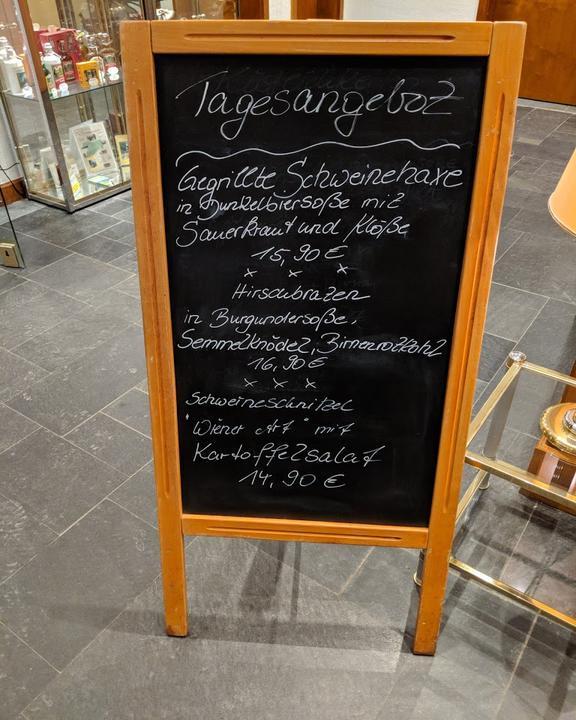 Tagesangebot
Gegrillte Schweinehaxe
in Dunkelbiersoße mit
Sauerkraut und Klöße
15,90 €
x x x
Hirschbraten
in Burgundersoße,
Semmelknödel, Birnenrotkohl
16,90 €
x x x
Schweineschnitzel
"Wiener Art" mit
Kartoffelsalat
14,90 €